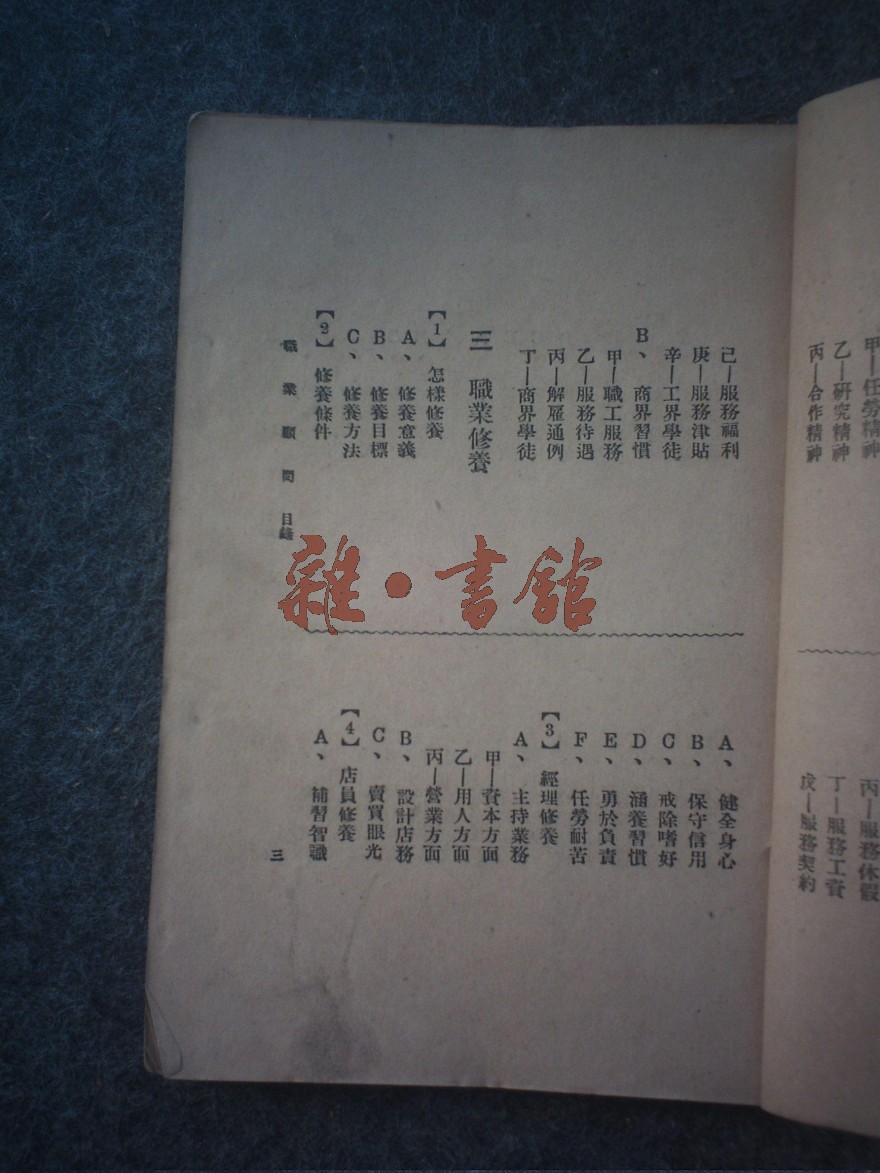 甲—任勞精神
乙—研究精神
丙—合作精神
丙—服務休假
丁—服務工資
戊—服務契約
己—服務福利
庚—服務津貼
辛—工界學徒
B、商界習慣
甲—職工服務
乙—服務待遇
丙—解雇通例
丁—商界學徒
三 職業修養
【1】怎樣修養
A、修養意義
B、修養目標
C、修養方法
【2】修養條件
A、健全身心
B、保守信用
C、戒除嗜好
D、涵養習慣
E、勇於負責
F、任勞耐苦
【3】經理修養
A、主持業務
甲—資本方面
乙—用人方面
丙—營業方面
B、設計店務
C、賣買眼光
【4】店員修養
A、補習智識
職業顧問 目錄
三
雜·書館